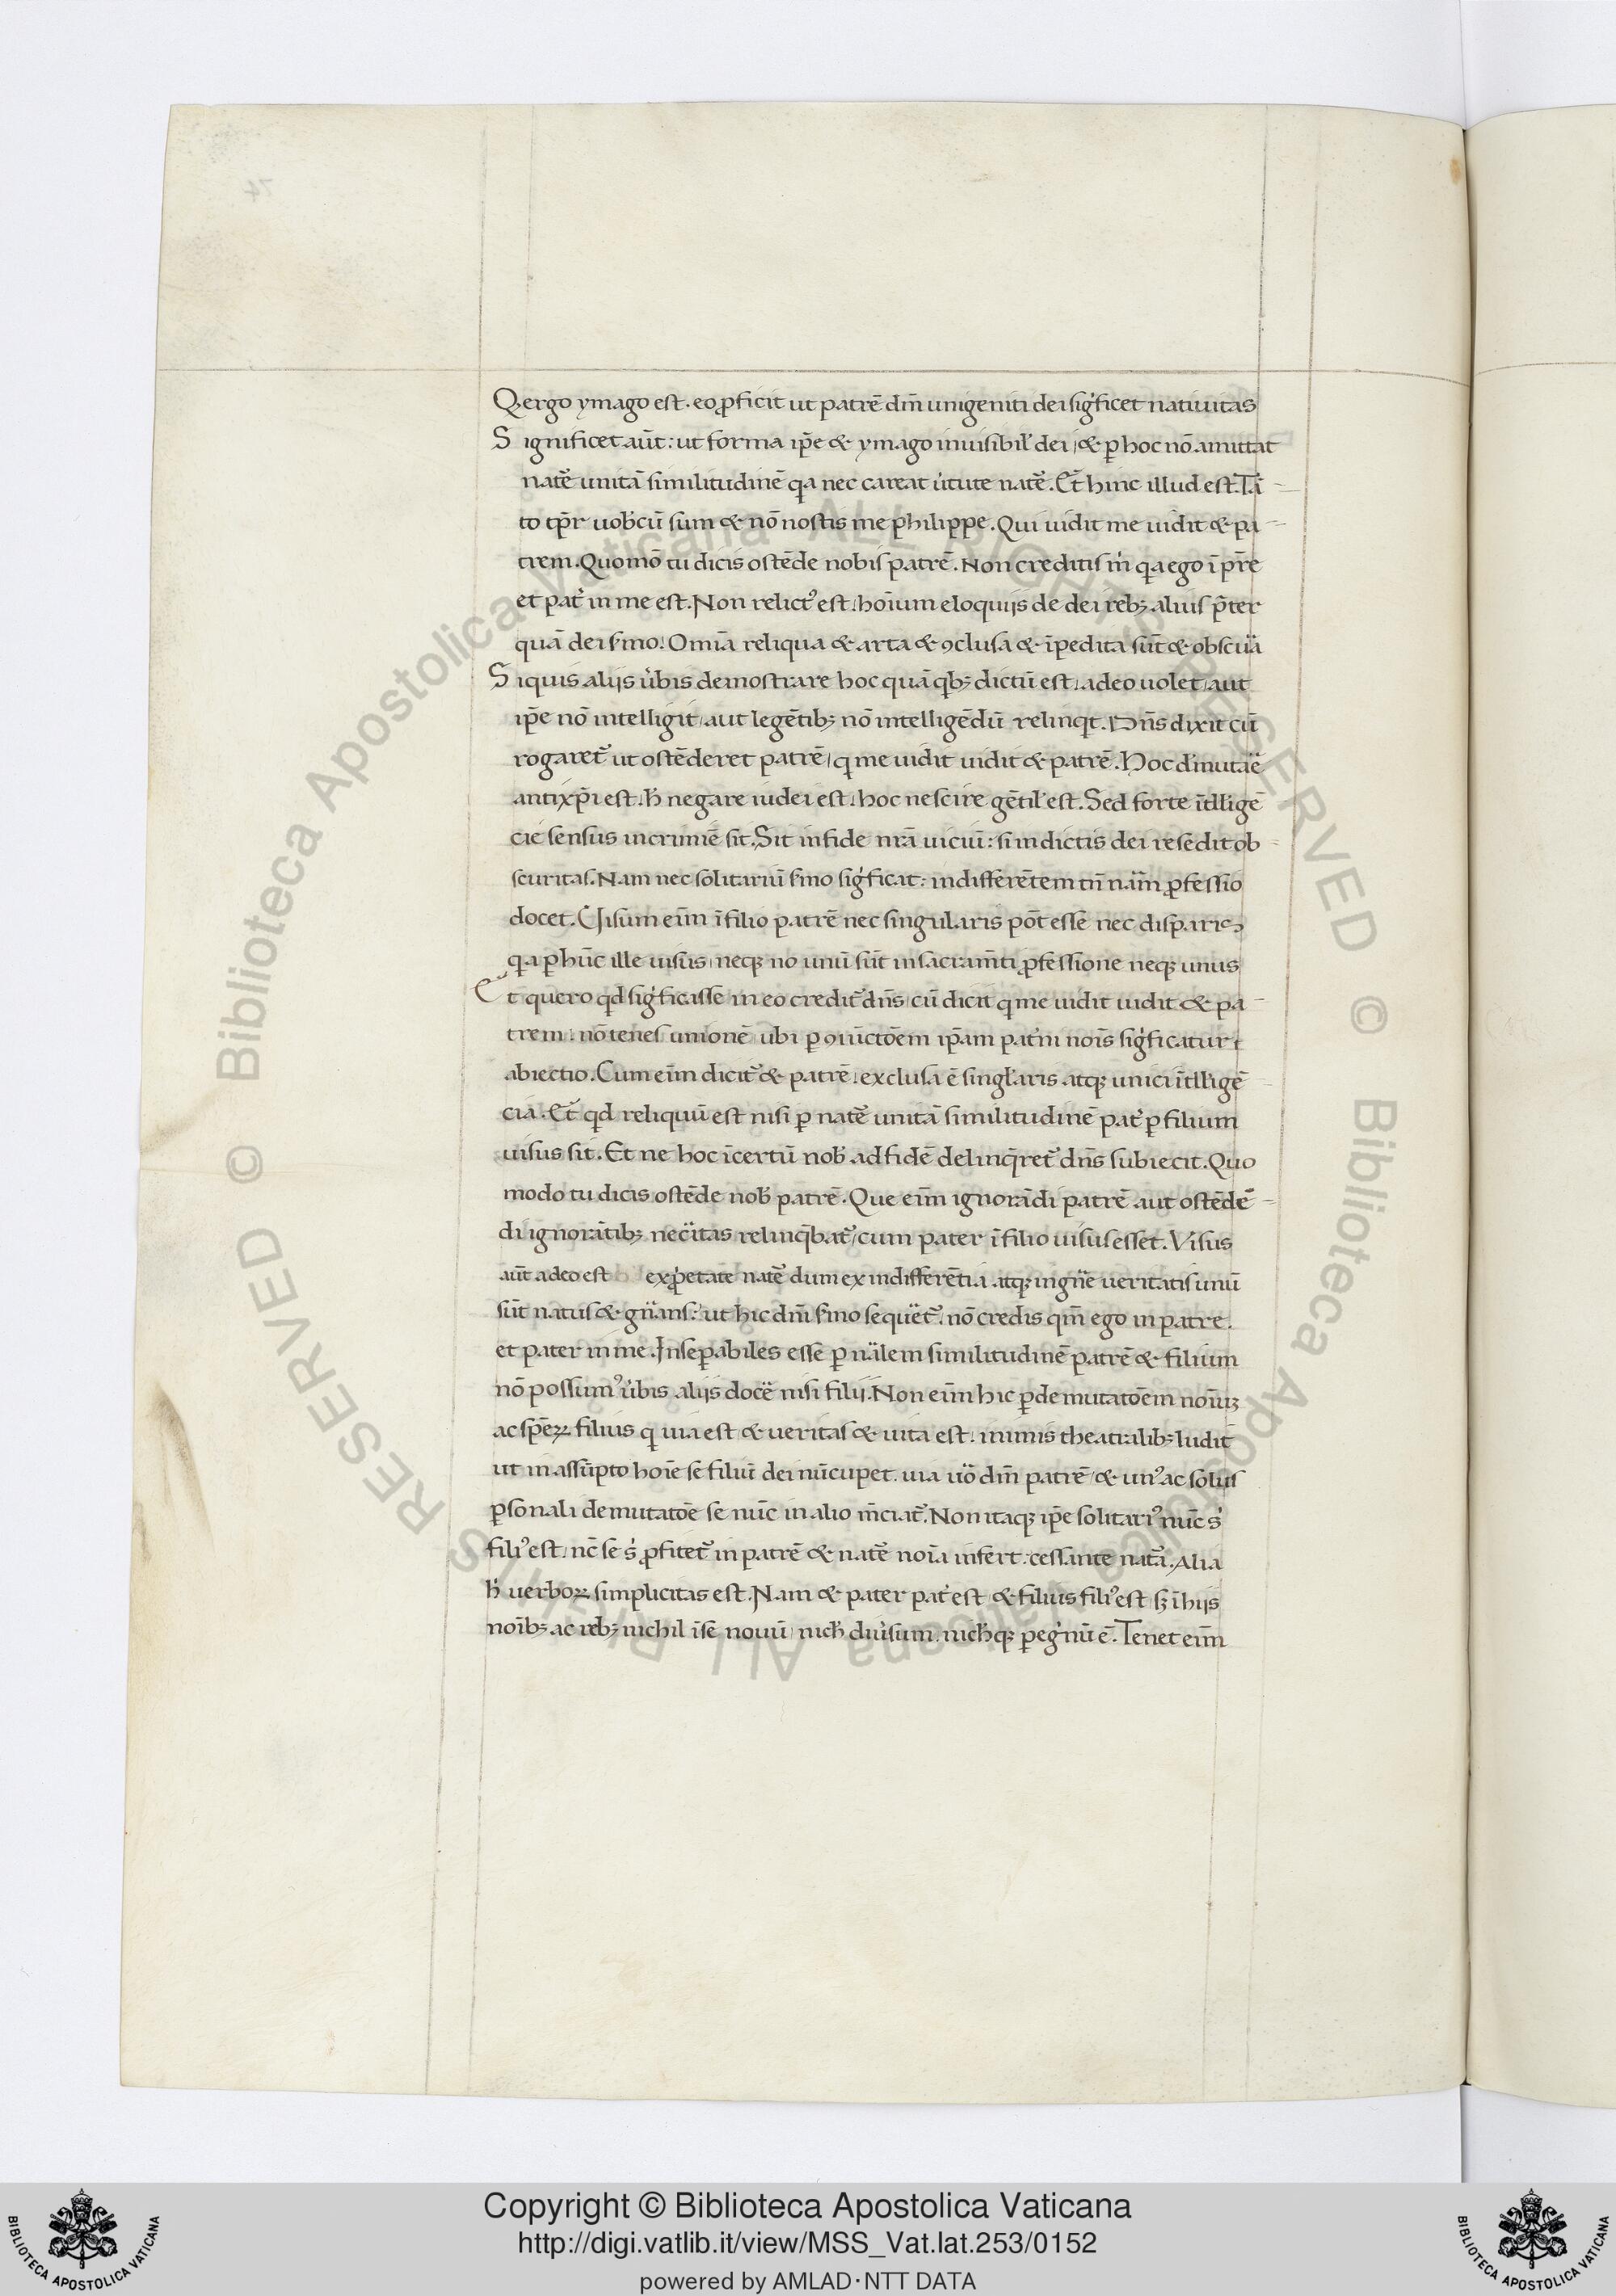 Q, ergo ymago est. eo ꝓficit ut patrē dm̄ unigeniti dei sigͥficet natiuitas
Significet aūt: ut forma ip̄e & ymago inuisibil' dei, & ꝑ hoc nō amittat
natē᷑ unitā similitudinē qa nec careat ůtute natē᷑. Et᷑ hinc illud est. Tā
to tꝑ̄r uob̾cū sum & nō nostis me philippe. Qui uidit me uidit & pa
trem. Quomō tu dicis ostēde nobis patrē. Non creditis m̊ qa ego ī pr̄e
et pat᷑ in me est. Non relictꝰ est hoīum eloquijs de dei reb; aliuſ p̄ter
quā dei s̾mo. Omīa reliqua & arta & ꝯclusa & īpedita sūt & obscüa
Siquis alijs ůbis demostrare hoc quā qb; dictū est, adeo uolet, aut
ip̄e nō intelligit, aut legētib; nō intelligēdū relinqt. Dn̄s dixit cū
rogaret᷑ ut ostēderet patrē, q me uidit uidit & patrē. Hoc dimutäe
antixp̄i est. h̾ negare iudei est. hoc nescire gētil' est. Sed forte ītllige
cie sensus incrimīe sit. Sit in fide nr̄a uiciū: si in dictis dei resedit ob
scuritas. Nam nec solitariū s̾mo sigͥficat: indifferētem tn̄ näm ꝓfessio
docet. Uisum eīm ī filio patrē nec singularis pōt esse nec disparis
qa ꝑ hūc ille uisus, neqꝫ no unū sūt in sacram̄ti ꝓfessione neqꝫ unus
Et quero qd sigͥficasse in eo credit᷑ dn̄s, cū dicit q me uidit uidit & pa
trem: nō tenes unionē ubi ꝑ ꝯiūctōem ip̄am pat᷑ni noīs sigͥficatur
abiectio. Cum eīm dicit᷑ & patrē. exclusa ē singl'aris atqꝫ unici ītll'igē
cia. Et᷑ qd reliquū est nisi ꝑ natē᷑ unitā similitudinē pat᷑ ꝑ filium
uisus sit. Et ne hoc īcertū nob̾ ad fidē delinq̄ret᷑ dn̄s subiecit. Quo
modo tu dicis ostēde nob̾ patrē. Que eīm ignorādi patrē aut ostēdē
di ignorātib; necïtas relinq̄bat᷑, cum pater ī filio uisus esset. Visus
aūt adeo est ex ꝓ̾etate natē᷑ dum ex indifferētia atqꝫ ingn̈e ueritatis unū
sūt natus & gn̈ans: ut hic dm̄ s̾mo sequët᷑. nō credis qm̄ ego in patre.
et pater in me. Inseꝑabiles esse ꝑ nälem similitudinē patrē & filium
nō possumꝰ ůbis alijs docë nisi filij. Non eīm hic ꝑ demutatōem noīuꝫ
ac spēꝝ filius q uia est & ueritas & uita est. mimis theatralib; ludit
ut in assūpto hoīe se filiū dei nūcupet. uia uö dm̄ patrē, & unꝰ ac solus
ꝑsonali demutatōe se nūc in alio m̄ciat᷑. Non itaqꝫ ip̄e solitariꝰ nūc ś
filiꝰ est, nc̄ se ś ꝓfitet᷑ in patrē & natē᷑ noīa infert. cessante natā᷑. Alia
h̾ uerboꝝ simplicitas est. Nam & pater pat᷑ est & filius filiꝰ est sꝫ ī hijs
noīb; ac reb; nichil ī se nouū, nich̾ diuisum. nich̾qꝫ ꝑegͥnū ē. Tenet eīm
Copyright © Biblioteca Apostolica Vaticana
http://digi.vatlib.it/view/MSS_Vat.lat.253/0152
powered by AMLAD·NTT DATA
BIBLIOTECA APOSTOLICA VATICANA
BIBLIOTECA APOSTOLICA VATICANA
© Biblioteca Apostolica Vaticana ALL RIGHTS RESERVED
© Biblioteca Apostolica Vaticana ALL RIGHTS RESERVED